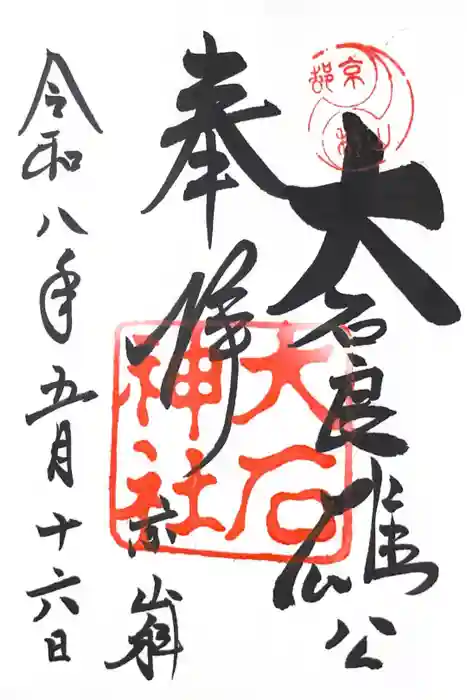 京都
山科
大石良雄公
奉拝
大石
神社
京山科
令和八年五月十六日